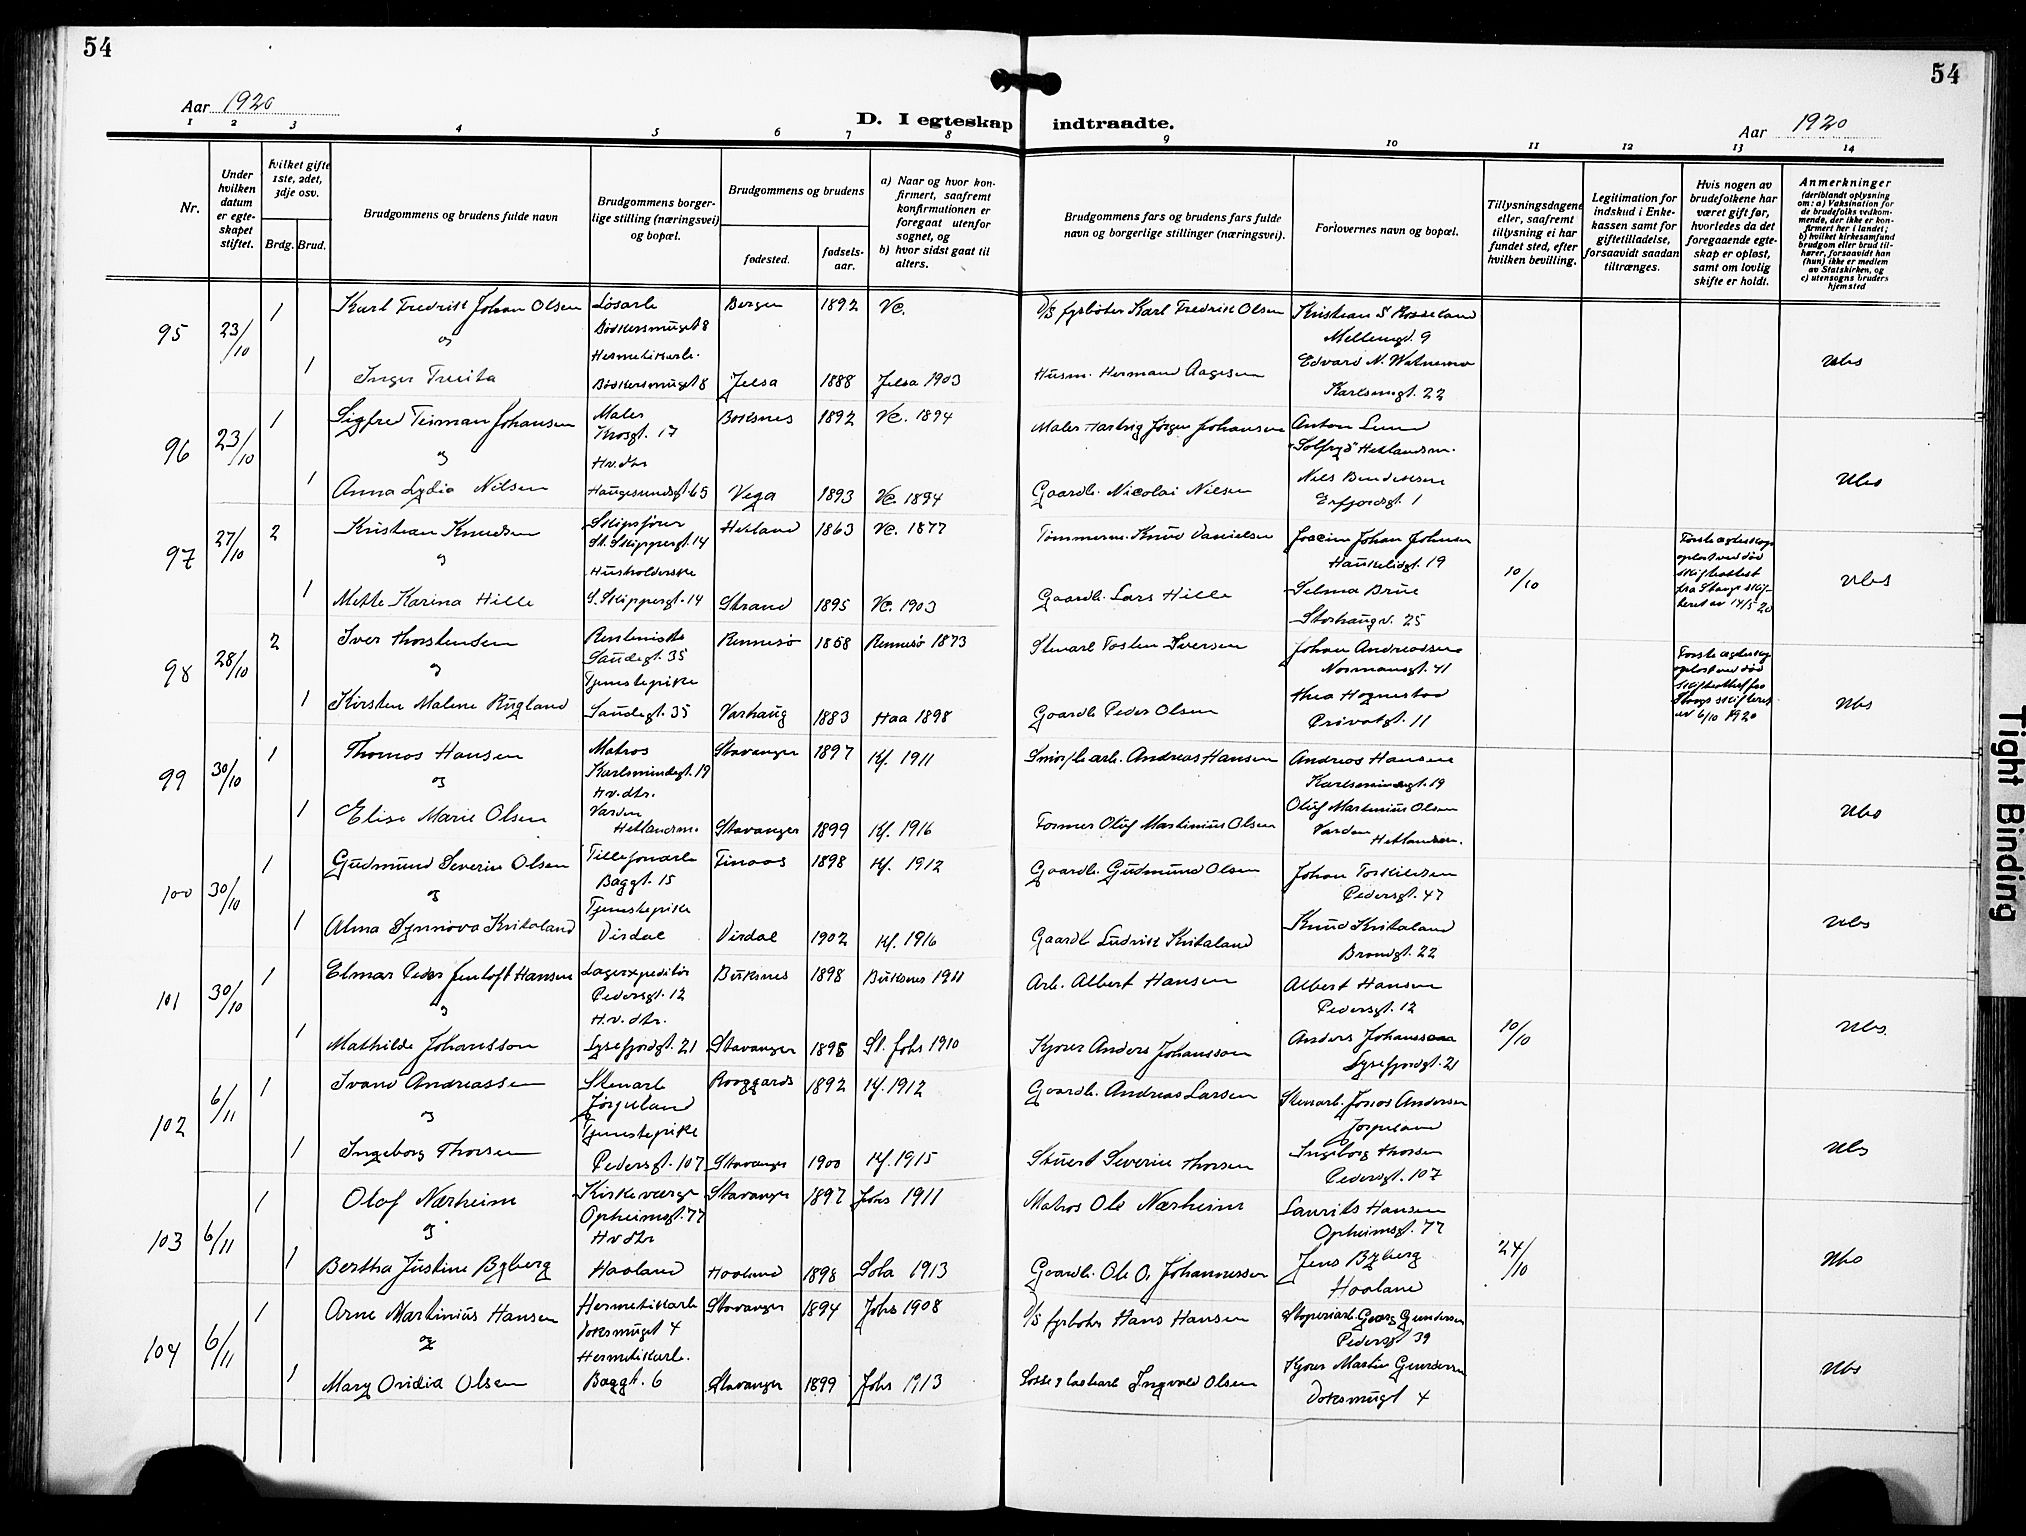 54
54
Aar 1920
D. I egteskap indtraadte.
Aar 1920
1 2 3 4 5 6 7 8 9 10 11 12 13 14
Nr.
Under hvilken datum er egteskapet stiftet.
hvilket gifte 1ste, 2det, 3dje osv.
Brdg. Brud.
Brudgommens og brudens fulde navn
Brudgommens borgerlige stilling (næringsvei) og bopæl.
Brudgommens og brudens
fødested.
fødselsaar.
a) Naar og hvor konfirmert, saafremt konfirmationen er foregaat utenfor sognet, og
b) hvor sidst gaat til alters.
Brudgommens fars og brudens fars fulde navn og borgerlige stillinger (næringsvei).
Forlovernes navn og bopæl.
Tillysningsdagene eller, saafremt tillysning ei har fundet sted, efter hvilken bevilling.
Legitimation for indskud i Enkekassen samt for giftetilladelse, forsaavidt saadan tiltrænges.
Hvis nogen av brudefolkene har været gift før, hvorledes da det foregaaende egteskap er opløst, samt om lovlig skifte er holdt.
Anmerkninger
(deriblandt oplysning om: a) Vaksination for de brudefolks vedkommende, der ikke er konfirmert her i landet; b) hvilket kirkesamfund brudgom eller brud tilhører, forsaavidt han (hun) ikke er medlem av Statskirken, og c) utensogns bruders hjemsted
95 23/10 1 Karl Fredrik Johan Olsen Løsarb. Bergen 1892 Vc. D/S fyrbøter Karl Fredrik Olsen Kristian S
og Mellemgt. 9
Hermetikarb. Edvard N.
1 Inger Jelsa 1888 Jelsa 1903 Husm. Herman Aagesen Karlsmgt. 22 Ubs
96 23/10 1 Sigfred Johansen Maler 1892 Vc. 1894 Maler Hartvig Jørgen Johansen Anton Lund
Krosgt. 17 "Solfryd" Hetlandsm.
og Hv. dtr Niels
1 Anna Lydia Nilsen Haugesundsgt. 65 Vega 1893 Vc. 1894 Gaardb. Nicolai Nilsen Erfjordgt. 1 Ubs
97 27/10 2 Kristian Knudsen Skipsfører Hetland 1863 Vc. 1877 Tømmerm. Knud Danielsen Joacim Johan Johnsen
St. Skippergt. 14 Haukeligt. 19
og Husholderske Selma Brue
1 Mette Karina Hille S. Skippergt. 14 Strand 1895 Vc. 1903 Gaardb. Lars Hille Storhaugv. 25
10/10
Første egteskap opløst ved død skifteattest fra Stavgs skifteret av 14/5 20
Ubs
98 28/10 2 Iver Thorstensen Rentenist Rennesø 1858 Rennesø 1873 Stenarb. Tosten Iversen Johan Andreassen
Saudegt. 35 Normansgt. 41
og Tjenestepike Thea Hognestad
1 Kirsten Malene Rugland Saudegt. 35 Varhaug 1883 Haa 1898 Gaardb Peder Olsen Privatgt. 11
Første egteskap opløst ved død skifteattest fra Stavgs skifteret av 6/10 1920
Ubs
99 30/10 1 Thomas Hansen Matros Stavanger 1897 Kf. 1911 arb. Andreas Hansen Andreas Hansen
Karlsmindegt. 19 Karlsmindegt. 19
og Hv. dtr. Oluf Martinius Olsen
1 Elise Marie Olsen Varden Hetlandsm. Stavanger 1899 Kf. 1916 Former Oluf Martinius Olsen Varden Hetlandsm. Ubs
100 30/10 1 Gudmund Severin Olsen Finnaas 1898 Kf. 1912 Gaardb. Gudmund Olsen Johan Torkildsen
Baggt. 15 Pedersgt. 47
og Tjenestepike Knud Kvitaland
1 Alma Synnøva Kvitaland Virdal Virdal 1902 Kf. 1916 Gaardb Ludvik Kvitaland Brandgt. 22 Ubs
101 30/10 1 Elmar Peder Jentoft Hansen Lagerexpeditør Buksnes 1898 Buksnes 1911 Arb. Albert Hansen Albert Hansen
Pedersgt. 12 Pedersgt. 12
og H.v. dtr. Anders Johansson
1 Mathilde Johansson Lysefjordgt. 21 Stavanger 1895 St. Johs 1910 Kjører Anders Johansson Lysefjordgt. 21
10/10
Ubs.
102 6/11 1 Ivand Andreassen Stenarb 1892 Kf. 1912 Gaardb. Andreas Larsen Stenarb. Jonas Andersen
Jørpeland Jørpeland
og Tjenestepike Ingeborg Thorsen
1 Ingeborg Thorsen Pedersgt. 107 Stavanger 1900 Kf. 1915 Stuert Severin Thorsen Pedersgt. 107 Ubs
103 6/11 1 Olaf Nærheim Kirkeværge Stavanger 1897 Johs 1911 Matros Ole Nærheim Laurits Hansen
Opheimsgt. 77 Opheimsgt. 77
og Hv dtr Jens Byberg
1 Bertha Justine Byberg Haaland Haaland 1898 Sola 1913 Gaardb. Ole O. Johannessen Haaland
24/10
Ubs
104 6/11 1 Arne Martinius Hansen Hermetikarb Stavanger 1894 Johs 1908 D/S fyrbøter Hans Hansen Støperiarb. Georg Gundersen
Voksmugt 4 Pedersgt 39
og Hermetikarb. Kjører Martin Gundersen
1 Mary Ovidia Olsen Baggt. 6 Stavanger 1899 Johs 1913 Losse & lastearb Ingvald Olsen Voksmugt 4 Ubs
Tight Binding